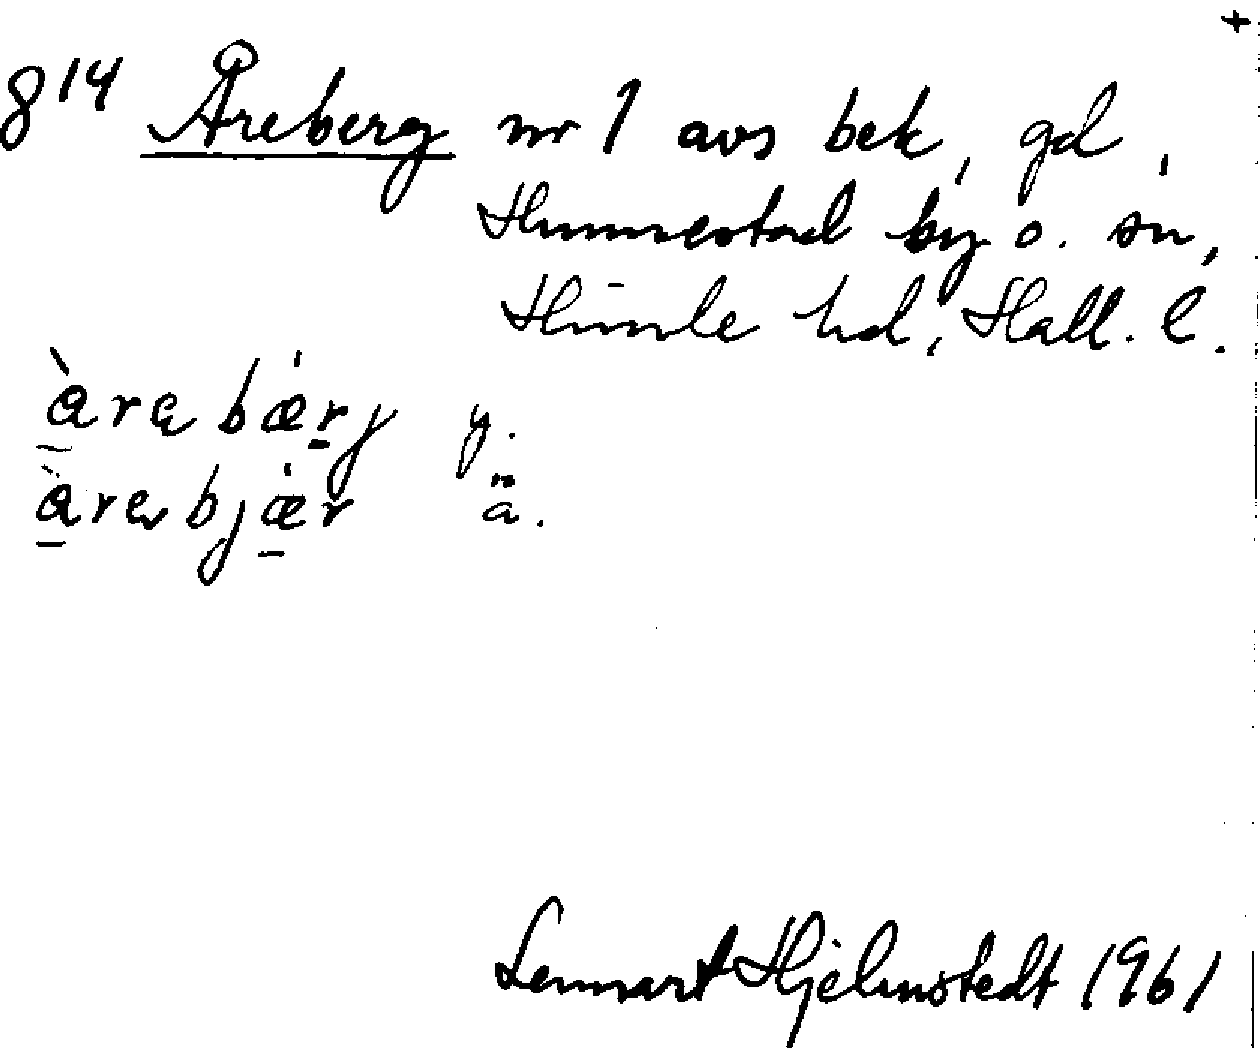 +
8 14 Åreberg nr 1 avs bek, gd,
Hunnestad by o. sn,
Himle hd, Hall. l.
àrebæ̀rj y.
àrebjær ä.
Lennart Hjelmstedt 1961